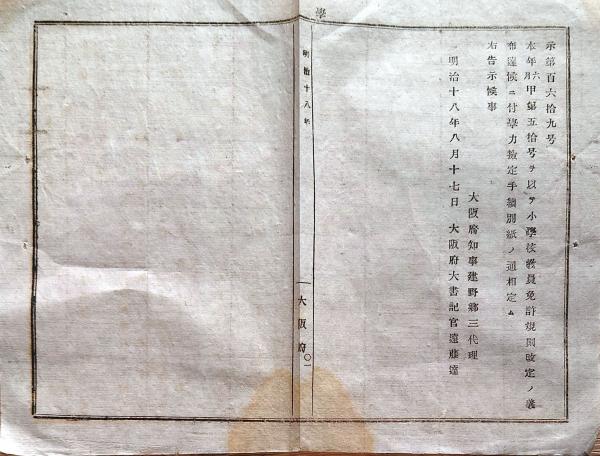 示第百六拾九号
本年六月甲第五拾号ヲ以テ小學校教員免許規則改定ノ義
布達候ニ付學力撿定手續別紙ノ通相定ム
右告示候事
大阪府知事建野郷三代理
明治十八年八月十七日 大阪府大書記官遠藤達
學
明治十八年
大阪府